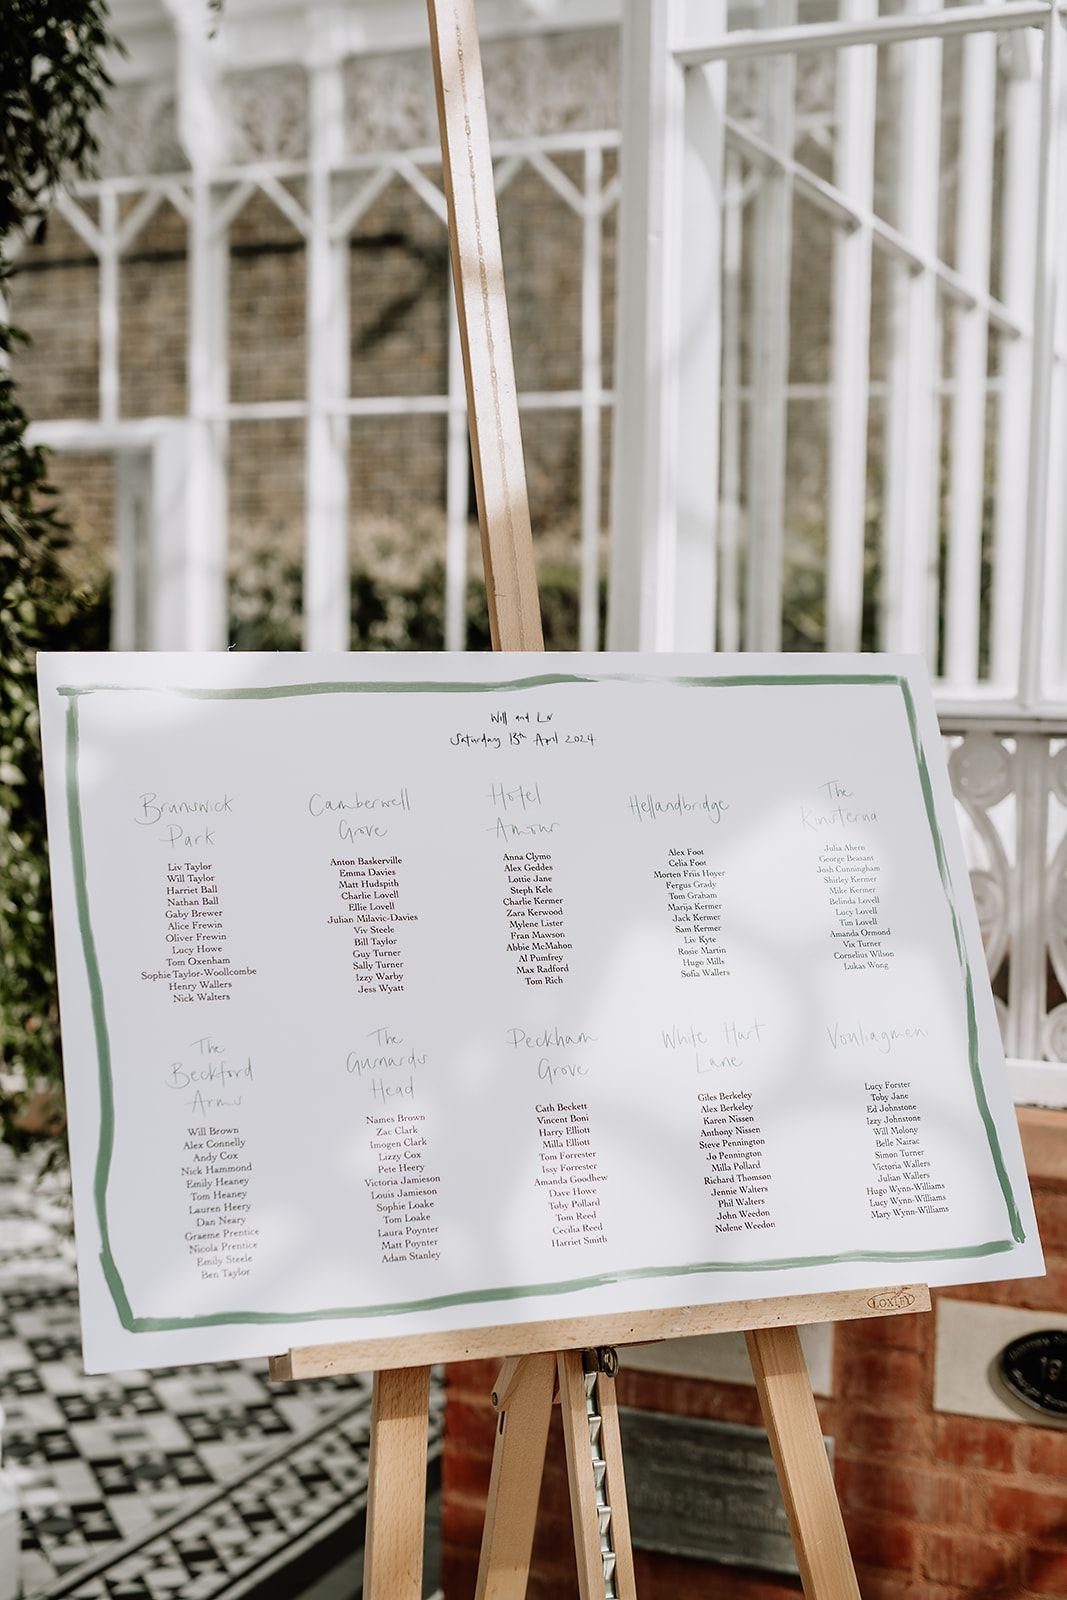 Will and Liv
Saturday 13th April 2024
Brunswick
Park
Liv Taylor
Will Taylor
Harriet Ball
Nathan Ball
Gaby Brewer
Alice Frewin
Oliver Frewin
Lucy Howe
Tom Oxenham
Sophie Taylor-Woollcombe
Henry Wallers
Nick Walters
Camberwell
Grove
Anton Baskerville
Emma Davies
Matt Hudspith
Charlie Lovell
Ellie Lovell
Julian Milavic-Davies
Viv Steele
Bill Taylor
Guy Turner
Sally Turner
Izzy Warby
Jess Wyatt
Hotel
Amour
Anna Clymo
Alex Geddes
Lottie Jane
Steph Kele
Charlie Kermer
Zara Kerwood
Mylene Lister
Fran Mawson
Abbie McMahon
Al Pumfrey
Max Radford
Tom Rich
Hellandbridge
Alex Foot
Celia Foot
Morten Friis Hoyer
Fergus Grady
Tom Graham
Marija Kermer
Jack Kermer
Sam Kermer
Liv Kyte
Rosie Martin
Hugo Mills
Sofia Wallers
The
Kinsterna
Julia Ahern
George Beasant
Josh Cunningham
Shirley Kermer
Mike Kermer
Belinda Lovell
Lucy Lovell
Tim Lovell
Amanda Ormond
Vix Turner
Cornelius Wilson
Lukas Wong
The
Beckford
Arms
Will Brown
Alex Connelly
Andy Cox
Nick Hammond
Emily Heaney
Tom Heaney
Lauren Heery
Dan Neary
Graeme Prentice
Nicola Prentice
Emily Steele
Ben Taylor
The
Gurnards
Head
Names Brown
Zac Clark
Imogen Clark
Lizzy Cox
Pete Heery
Victoria Jamieson
Louis Jamieson
Sophie Loake
Tom Loake
Laura Poynter
Matt Poynter
Adam Stanley
Peckham
Grove
Cath Beckett
Vincent Boni
Harry Elliott
Milla Elliott
Tom Forrester
Issy Forrester
Amanda Goodhew
Dave Howe
Toby Pollard
Tom Reed
Cecilia Reed
Harriet Smith
White Hart
Lane
Giles Berkeley
Alex Berkeley
Karen Nissen
Anthony Nissen
Steve Pennington
Jo Pennington
Milla Pollard
Richard Thomson
Jennie Walters
Phil Walters
John Weedon
Nolene Weedon
Vouliagmeni
Lucy Forster
Toby Jane
Ed Johnstone
Izzy Johnstone
Will Molony
Belle Nairac
Simon Turner
Victoria Wallers
Julian Wallers
Hugo Wynn-Williams
Lucy Wynn-Williams
Mary Wynn-Williams
LOXLEY
19